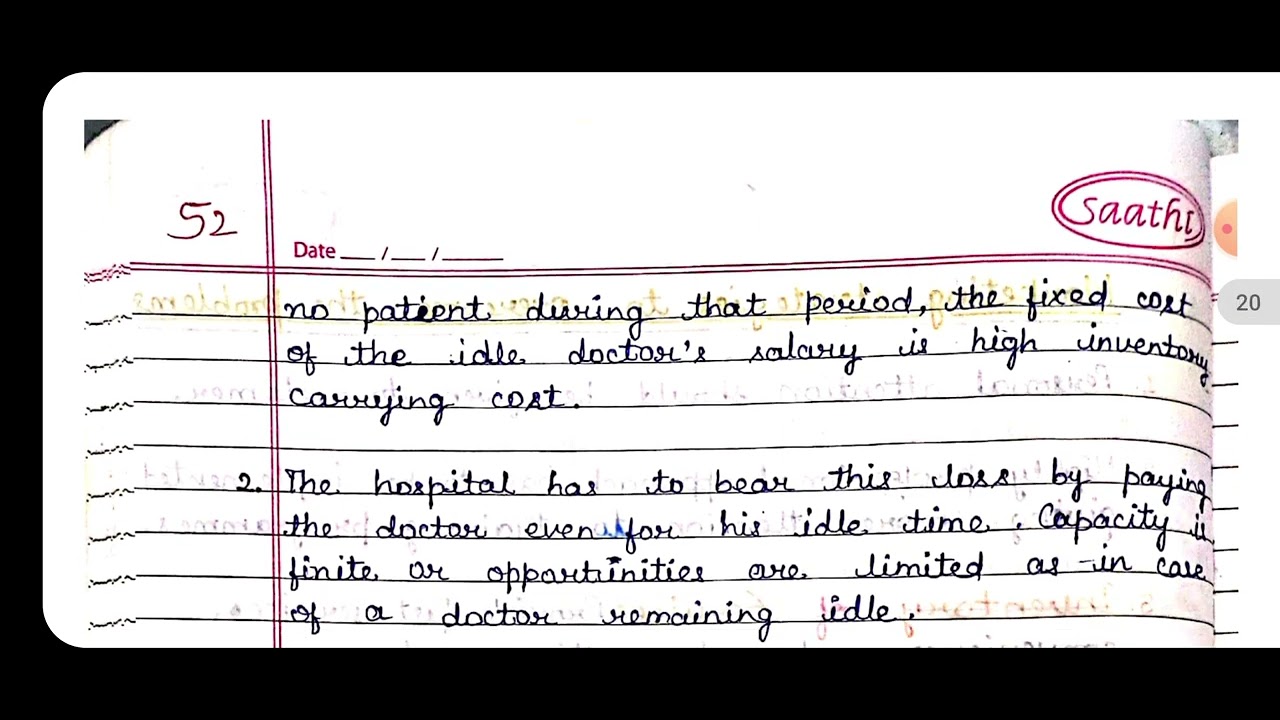 52
saathi
Date __ / __ / ____
no patient during that period, the fixed cost
of the idle doctor's salary is high inventory
carrying cost.
20
2. The hospital has to bear this loss by paying
the doctor even for his idle time. Capacity is
finite or opportunities are limited as in case
of a doctor remaining idle.